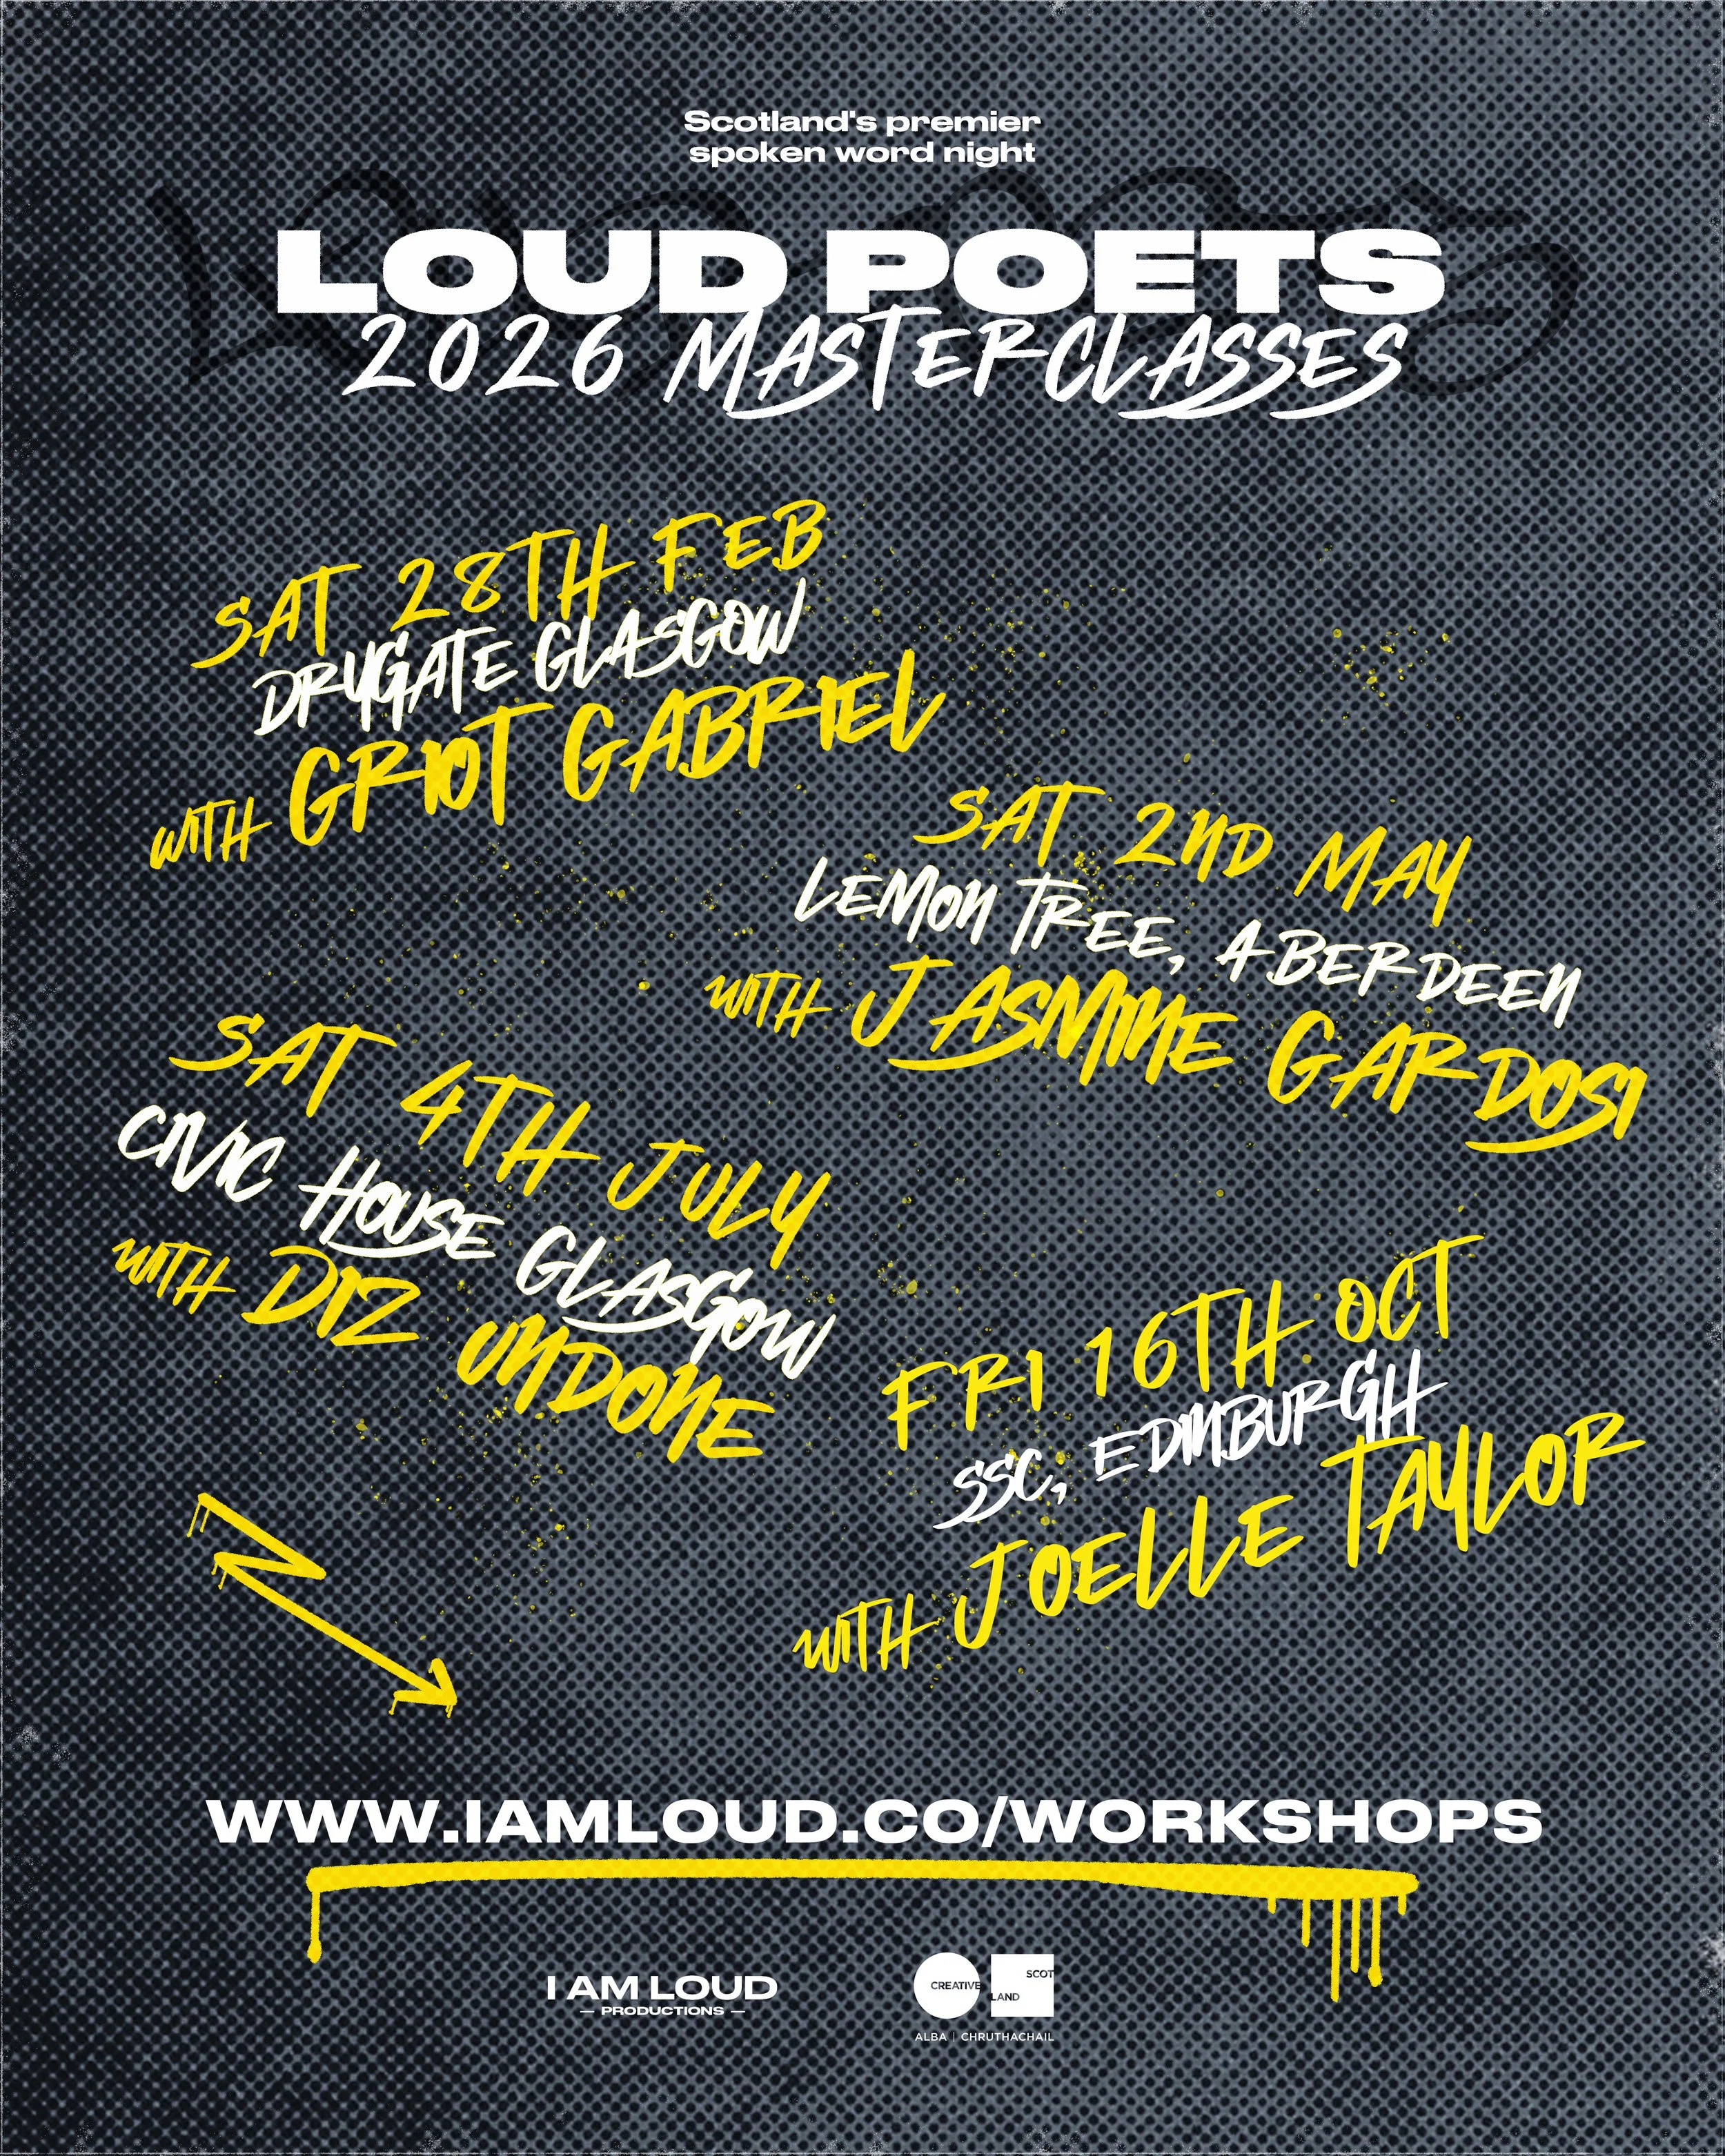 Scotland's premier
spoken word night
LOUD POETS
2026 MASTERCLASSES
SAT 28TH FEB
DRYGATE GLASGOW
WITH GRIOT GABRIEL
SAT 2ND MAY
LEMON TREE, ABERDEEN
WITH JASMINE GARDOSI
SAT 4TH JULY
CIVIC HOUSE GLASGOW
WITH DIZ UNDONE
FRI 16TH OCT
SSC, EDINBURGH
WITH JOELLE TAYLOR
WWW.IAMLOUD.CO/WORKSHOPS
I AM LOUD
— PRODUCTIONS —
CREATIVE SCOT
LAND
ALBA | CHRUTHACHAIL